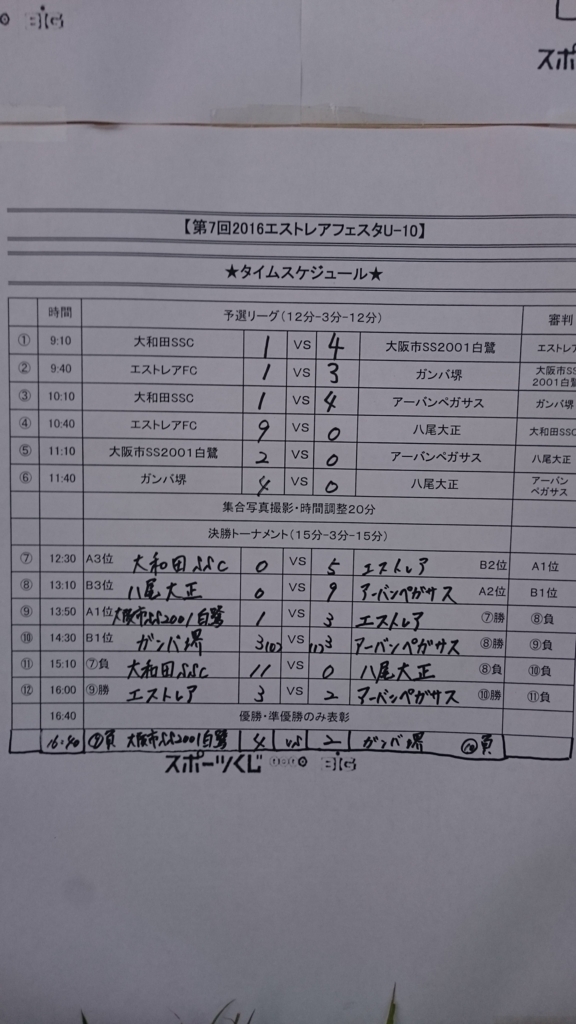 BIG
スポ
【第7回2016エストレアフェスタU-10】
★タイムスケジュール★
時間 予選リーグ(12分-3分-12分) 審判
① 9:10 大和田SSC 1 VS 4 大阪市SS2001白鷺 エストレア
② 9:40 エストレアFC 1 VS 3 ガンバ堺 大阪市SS2001白鷺
③ 10:10 大和田SSC 1 VS 4 アーバンペガサス ガンバ堺
④ 10:40 エストレアFC 9 VS 0 八尾大正 大和田SSC
⑤ 11:10 大阪市SS2001白鷺 2 VS 0 アーバンペガサス 八尾大正
⑥ 11:40 ガンバ堺 4 VS 0 八尾大正 アーバンペガサス
集合写真撮影・時間調整20分
決勝トーナメント(15分-3分-15分)
⑦ 12:30 A3位 大和田SSC 0 VS 5 エストレア B2位 A1位
⑧ 13:10 B3位 八尾大正 0 VS 9 アーバンペガサス A2位 B1位
⑨ 13:50 A1位 大阪市SS2001白鷺 1 VS 3 エストレア ⑦勝 ⑧負
⑩ 14:30 B1位 ガンバ堺 3 VS 3 アーバンペガサス ⑧勝 ⑨負
⑪ 15:10 ⑦負 大和田SSC 11 VS 0 八尾大正 ⑧負 ⑩負
⑫ 16:00 ⑨勝 エストレア 3 VS 2 アーバンペガサス ⑩勝 ⑪負
16:40 優勝・準優勝のみ表彰
16:40 ⑨負 大阪市SS2001白鷺 4 VS 2 ガンバ堺 ⑩負
スポーツくじ BIG